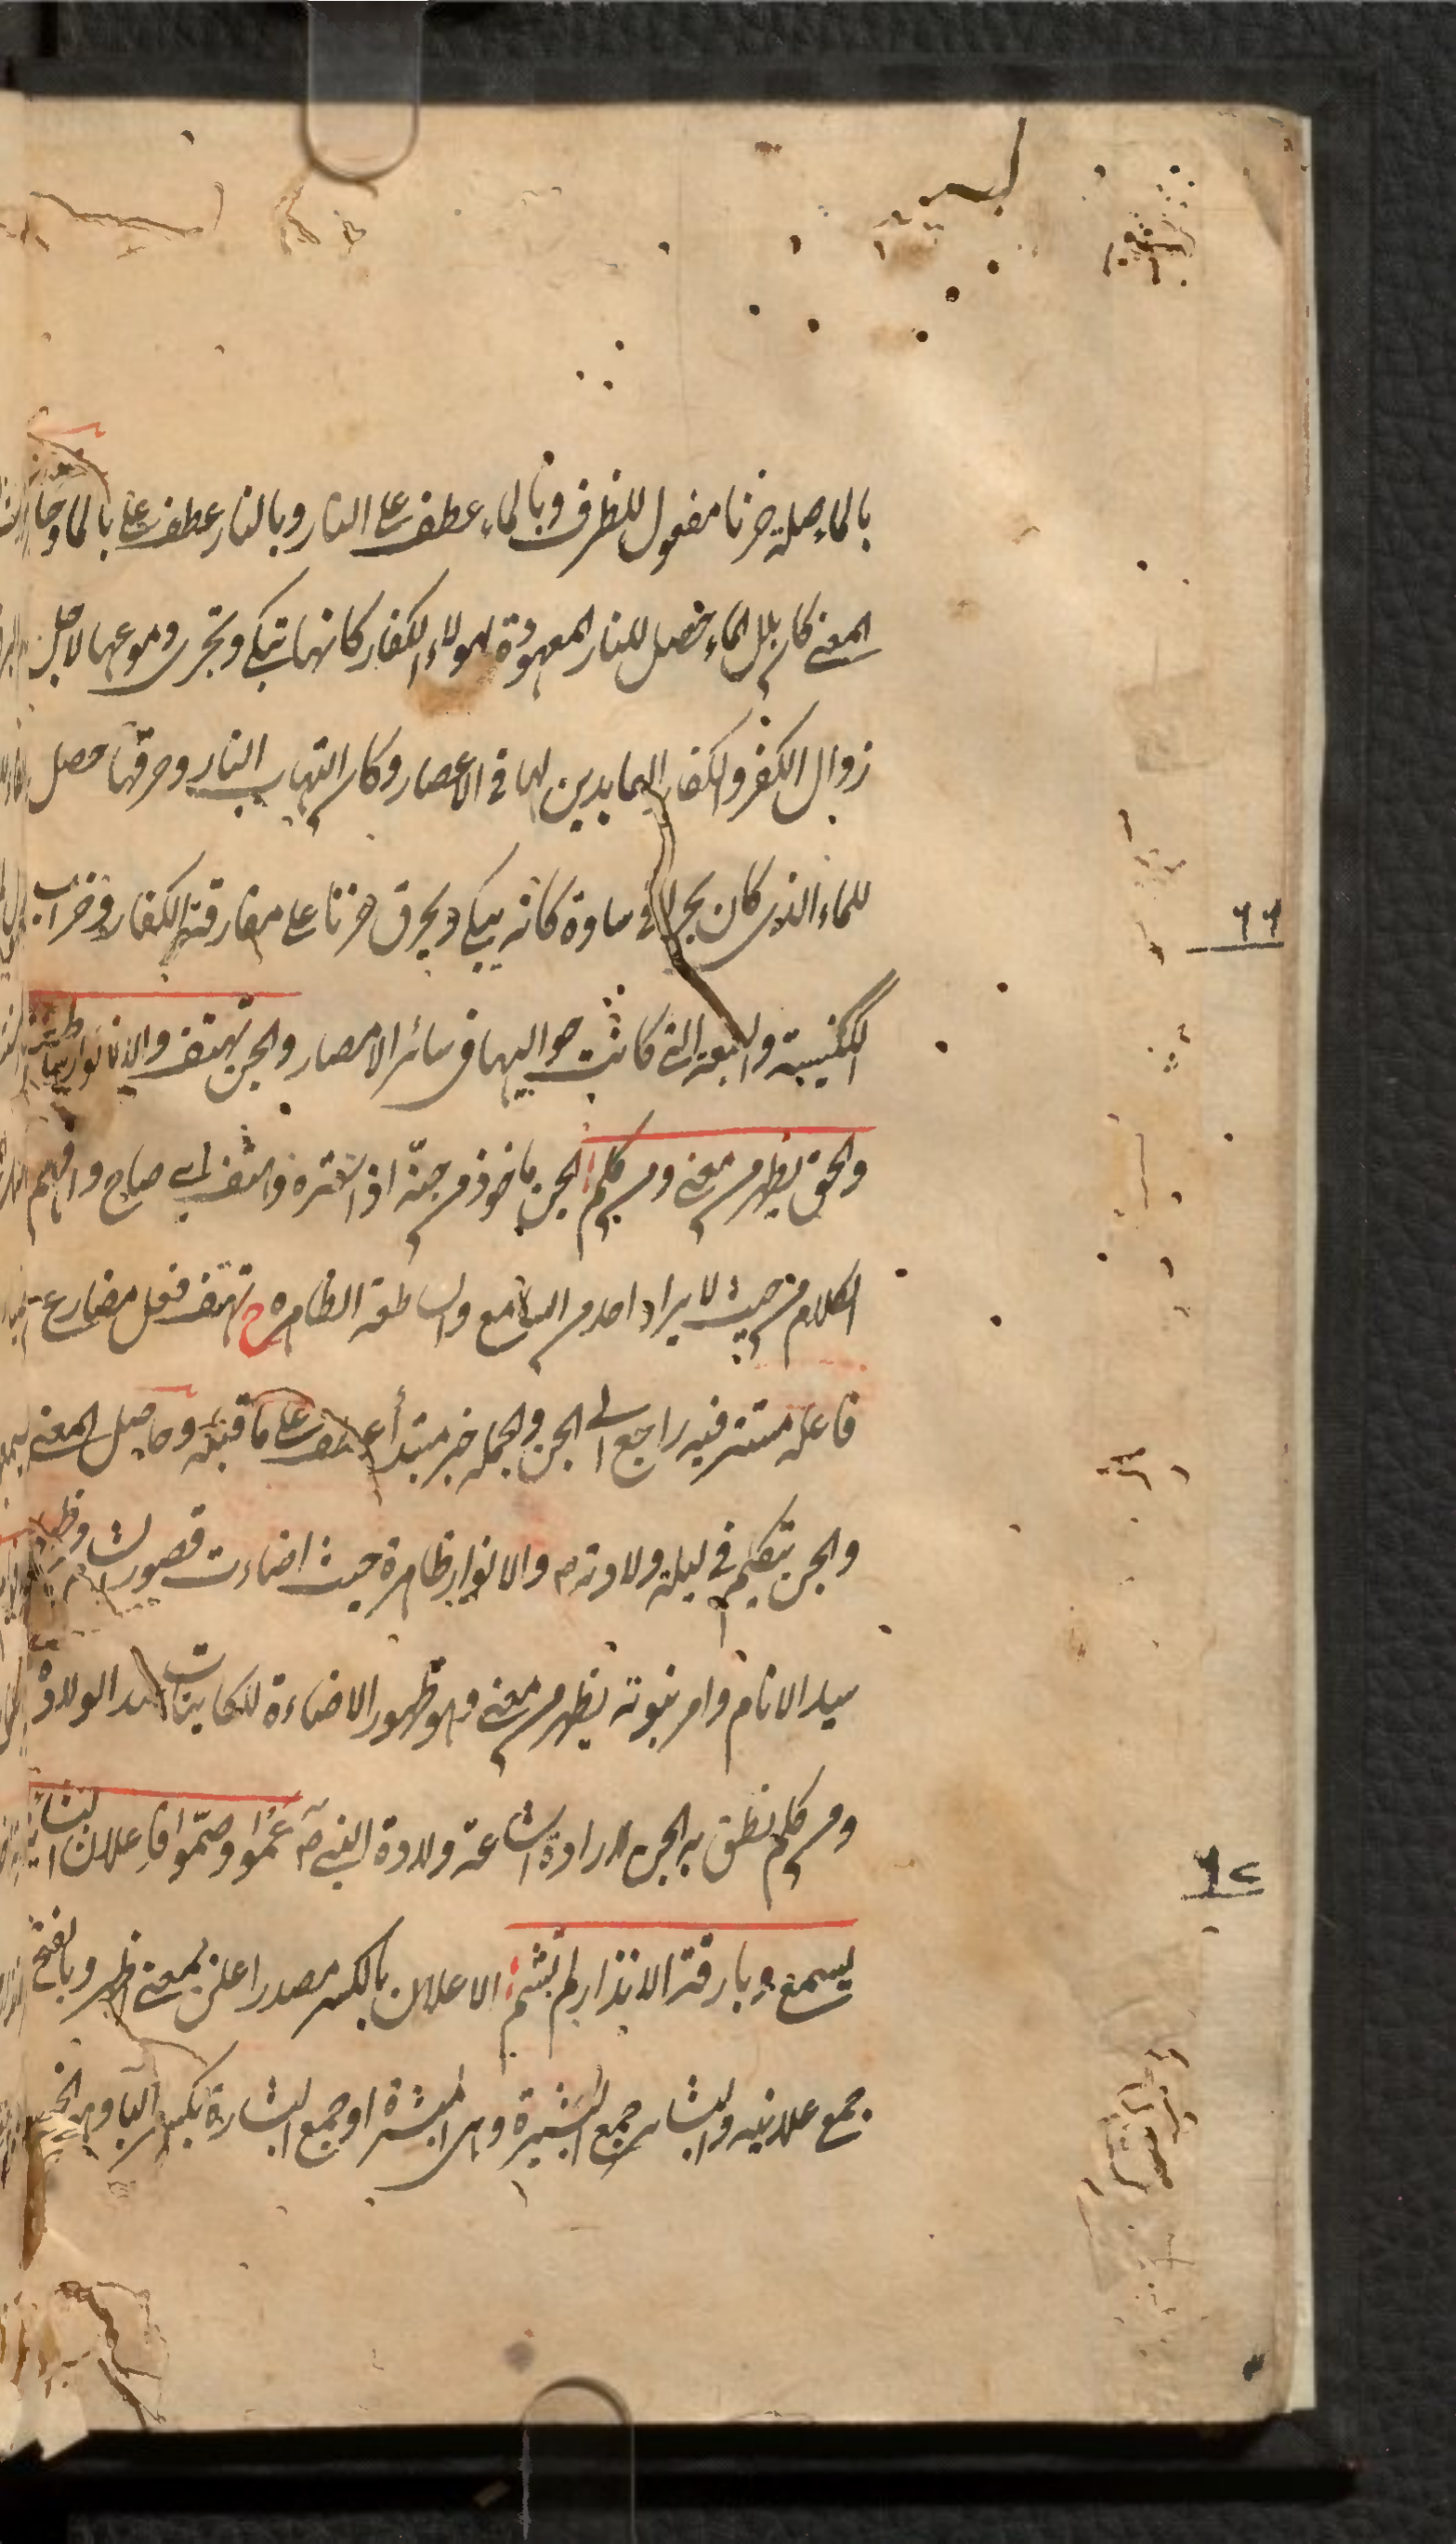 بالماء صلة حزنا مفعول للظرف وبالماء عطف على النار وبالنار عطف على بالماء وحاصل
المعنى كان بلل الماء حصل للنار المعهودة لهولاء الكفار كانها تبكى وتجرى دموعها لاجل
زوال الكفر والكفار العابدين لها فى الاعصار وكان التهاب النار وحرقتها حصل
للماء الذى كان بحيرة ساوة كانه يبكى ويحرق حزنا على مفارقة الكفار وخراب
الكنيسة والبيعة التى كانت حواليها فى سائر الامصار والجن تهتف والانوار ساطعة
والحق يظهر من معنى ومن كلم الجن ماخوذ من جنّه اذا ستره وهتف اى صاح وافهم
الكلام من حيث لا يراه احد من السامع والساطعة الظاهرة ح تهتف فعل مضارع
فاعله مستتر فيه راجع الى الجن والجملة خبر مبتدأ عطف على ما قبله وحاصل المعنى
والجن تتكلم فى ليلة ولادته م والانوار ظاهرة حيث اضاءت قصور الشام
سيد الانام وامر نبوته يظهر من معنى وهو ظهور الاضاءة للكاينات عند الولادة
ومن كلم نطق به الجن لارادة اشاعة ولادة النبى صم عموا وصمّوا فاعلان البشائر لم
٦٦
يسمع وبارقة الانذار لم تشم الاعلان بالكسر مصدر اعلن بمعنى اظهر وبالفتح
جمع علانية والبشاير جمع البشيرة وهى المبشرة او جمع البشارة بكسر الباء وهو الخبر
٦٢